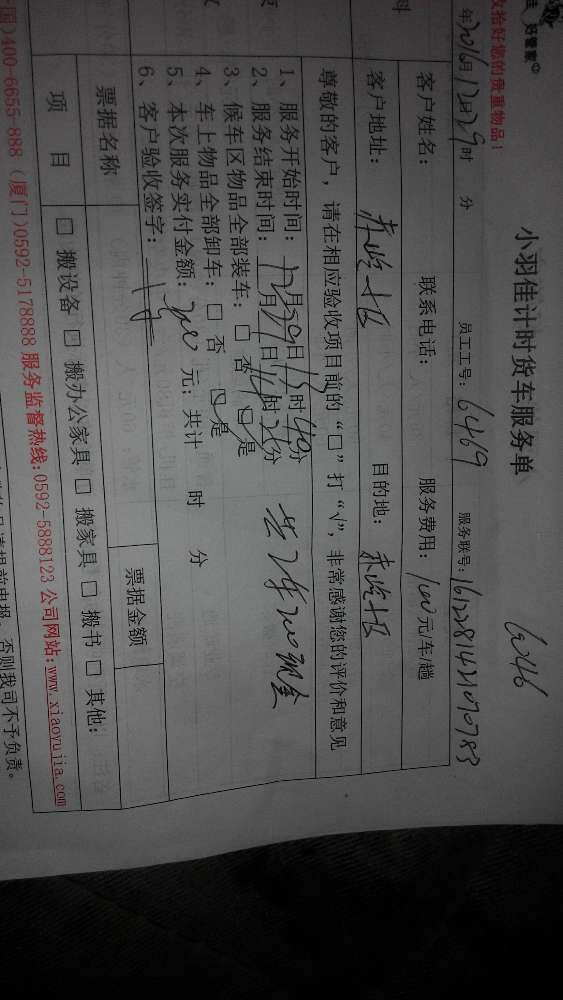 佳 好管家
收拾好您的贵重物品！
小羽佳计时货车服务单
6246
2016年12月29 时 分 员工工号：6469 服务联号：1612281421070783
客户姓名： 联系电话： 服务费用：100元/车/趟
客户地址： 目的地：
尊敬的客户，请在相应验收项目前的“□”打“√”，非常感谢您的评价和意见
1、服务开始时间：12月29日13时40分
2、服务结束时间： 月 日 时 分
3、候车区物品全部装车：□ 否 ☑ 是
4、车上物品全部卸车：□ 否 ☑ 是
5、本次服务实付金额：200元；共计 时 分
200现金
6、客户验收签字：
票据名称 票据金额
项 目 □ 搬设备 □ 搬办公家具 □ 搬家具 □ 搬书 □ 其他：
国)400-6655-888 (厦门)0592-5178888 服务监督热线:0592-5888123 公司网站:www.xiaoyujia.com
提前申报，否则我司不予负责。